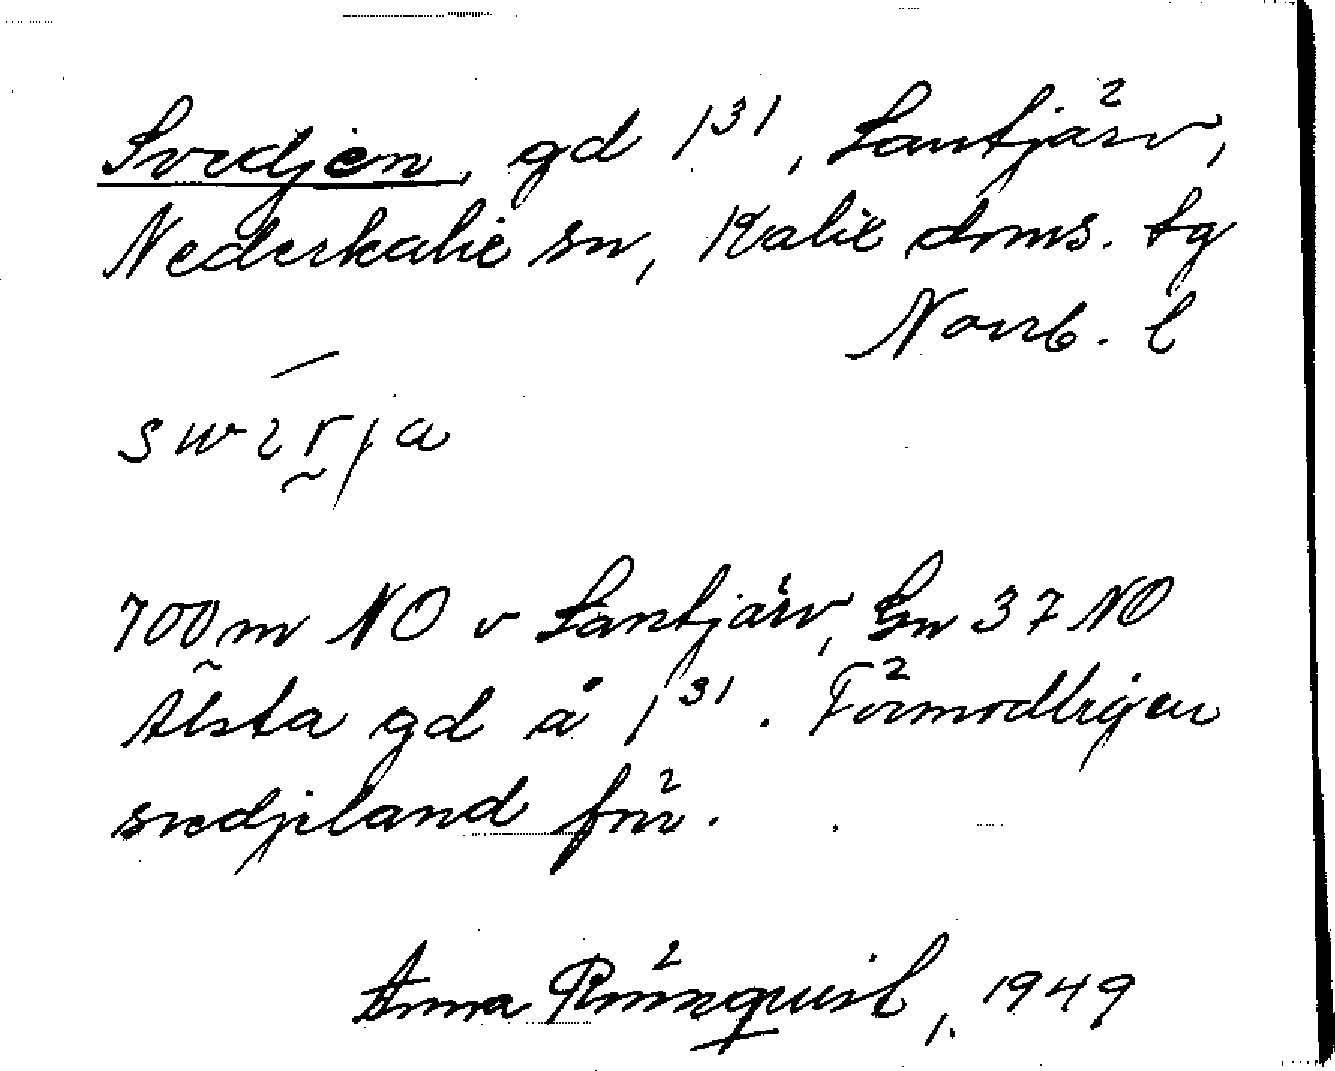 Svedjen, gd 1³¹, Lantjärv,
Nederkalix sn, Kalix doms. tg
Norrb. l
700 m NO v Lantjärv, Gn 37 NO
Älsta gd å 1³¹. Förmodligen
svedjeland förr.
Anna Rönnquist, 1949